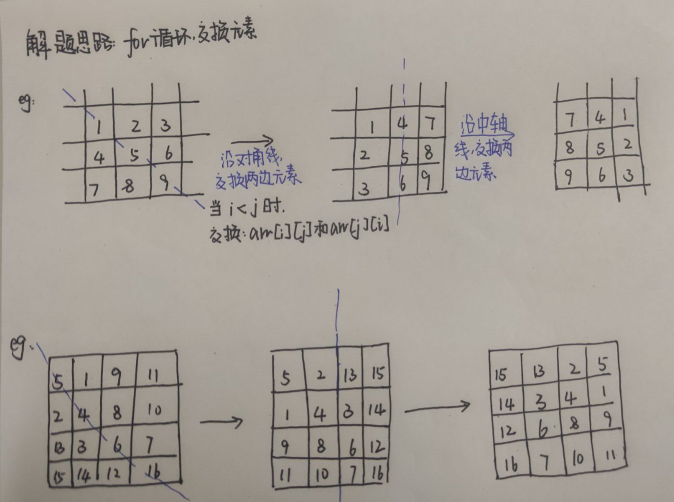 解题思路: for循环,交换元素
eg:
1 2 3
4 5 6
7 8 9
沿对角线,
交换两边元素
当 i < j 时,
交换: arr[i][j] 和 arr[j][i]
1 4 7
2 5 8
3 6 9
沿中轴
线,交换两
边元素
7 4 1
8 5 2
9 6 3
eg.
5 1 9 11
2 4 8 10
13 3 6 7
15 14 12 16
5 2 13 15
1 4 3 14
9 8 6 12
11 10 7 16
15 13 2 5
14 3 4 1
12 6 8 9
16 7 10 11